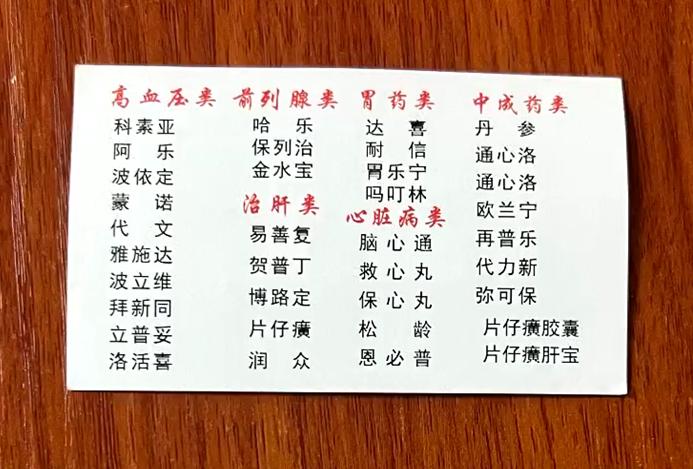 高血压类
科素亚
阿乐
波依定
蒙诺
代文
雅施达
波立维
拜新同
立普妥
洛活喜
前列腺类
哈乐
保列治
金水宝
治肝类
易善复
贺普丁
博路定
片仔癀
润众
胃药类
达喜
耐信
胃乐宁
吗叮林
心脏病类
脑心通
救心丸
保心丸
松龄
恩必普
中成药类
丹参
通心洛
通心洛
欧兰宁
再普乐
代力新
弥可保
片仔癀胶囊
片仔癀肝宝